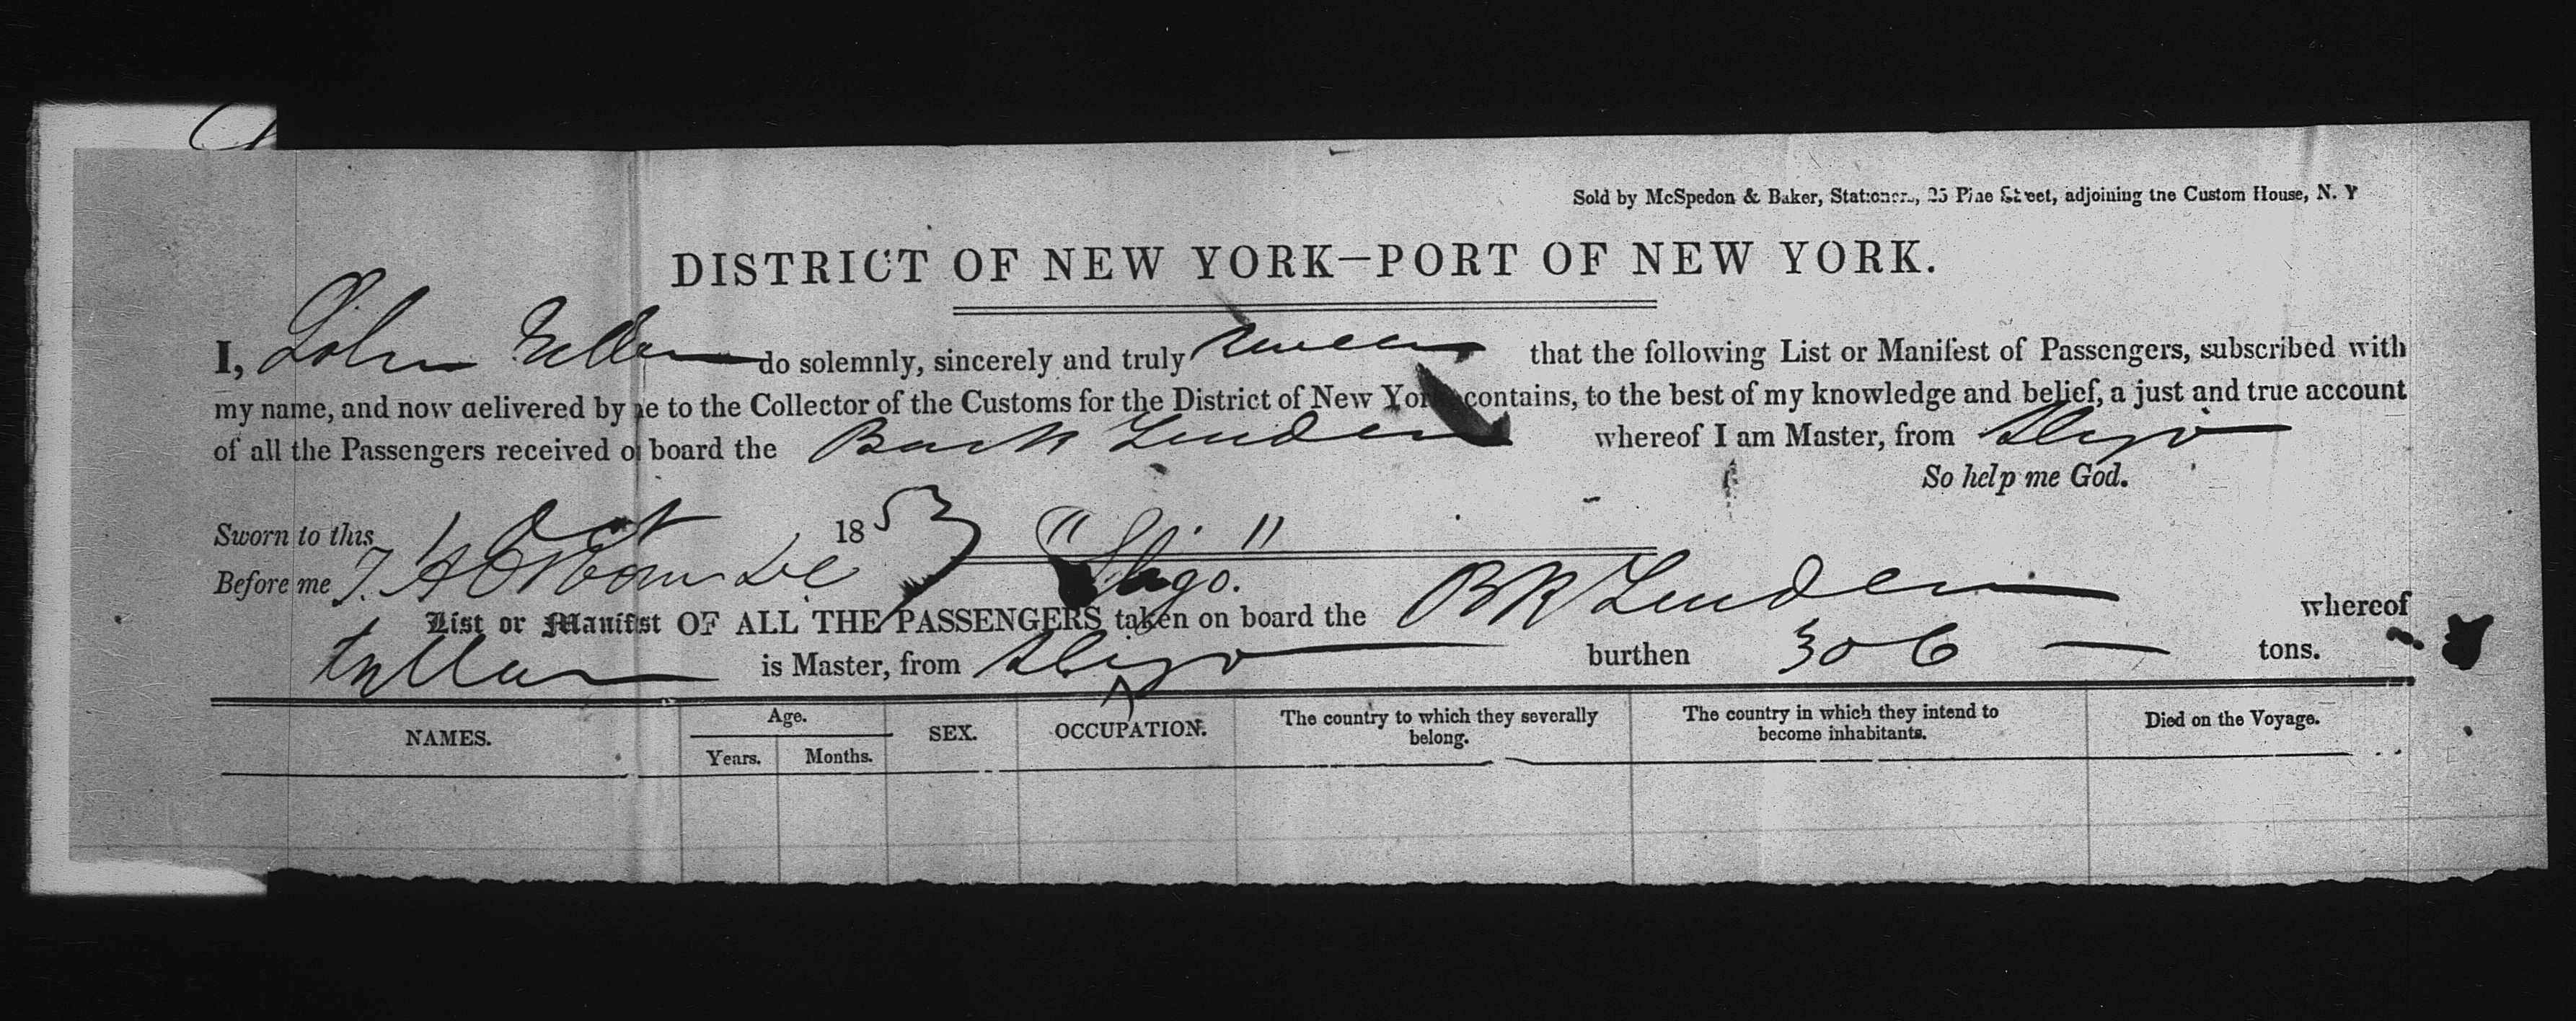 Sold by McSpedon & Baker, Stationers, 25 Pine Street, adjoining the Custom House, N. Y
DISTRICT OF NEW YORK—PORT OF NEW YORK.
I, John do solemnly, sincerely and truly swear that the following List or Manifest of Passengers, subscribed with
my name, and now delivered by me to the Collector of the Customs for the District of New York contains, to the best of my knowledge and belief, a just and true account
of all the Passengers received on board the Bark Linden whereof I am Master, from Sligo
So help me God.
Sworn to this 1 Oct 1853
"Sligo."
Before me
List or Manifest OF ALL THE PASSENGERS taken on board the BK Linden whereof
is Master, from Sligo burthen 306 tons.
NAMES. Age. Years. Months. SEX. OCCUPATION. The country to which they severally belong. The country in which they intend to become inhabitants. Died on the Voyage.